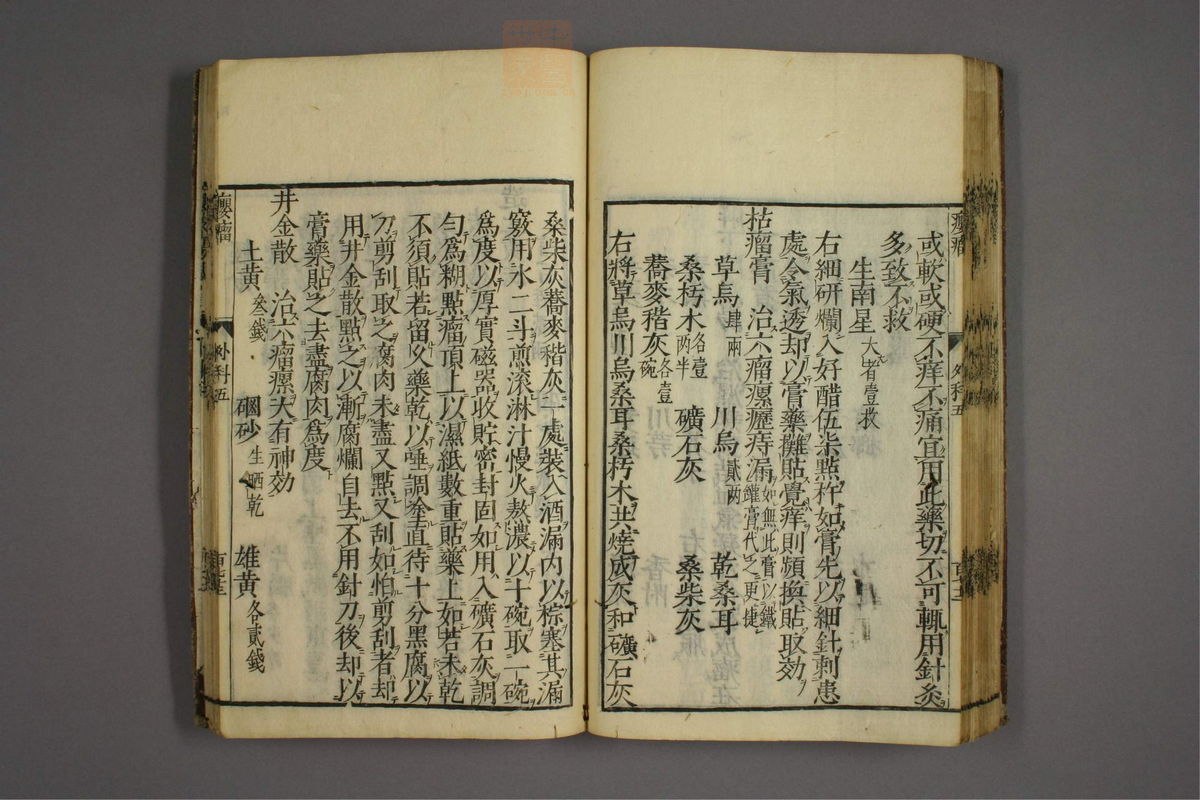 癭瘤
外科五
或軟或硬不痒不痛宜用此藥切不可輒用針灸
多致不救
生南星大者壹枚
右細研爛入好醋伍柒點杵如膏先以細針刺患
處令氣透却以膏藥攤貼覺痒則頻換貼取効
枯瘤膏 治六瘤瘰癧痔漏如無此膏以鐵鑵膏代之更捷
草烏肆兩 川烏貳兩 乾桑耳
桑朽木各壹兩半 礦石灰 桑柴灰
蕎麥稭灰各壹碗
右將草烏川烏桑耳桑朽木共燒成灰和礦石灰
桑柴灰蕎麥稭灰一處裝入酒漏内以棕塞其漏
竅用水二斗煎滾淋汁慢火熬濃以十碗取一碗
爲度以厚實磁器收貯密封固如用入礦石灰調
匀爲糊點瘤頂上以濕紙數重貼藥上如若未乾
不須貼若留久藥乾以唾調拳直待十分黑腐以
刀剪刮取之腐肉未盡又點又刮如怕剪刮者却
用井金散點之以漸腐爛自去不用針刀後却以
膏藥貼之去盡腐肉爲度
井金散 治六瘤瘰大有神効
土黄叁錢 硇砂生晒乾 雄黄各貳錢
癭瘤
外科五